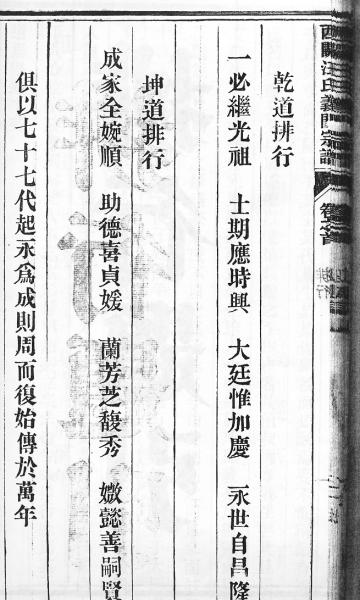 西關汪氏義門宗譜
乾道排行
一必繼光祖 士期應時興 大廷惟加慶 永世自昌隆
坤道排行
成家全婉順 助德喜貞媛 蘭芳芝馥秀 媺懿善嗣賢
俱以七十七代起永爲成則周而復始傳於萬年